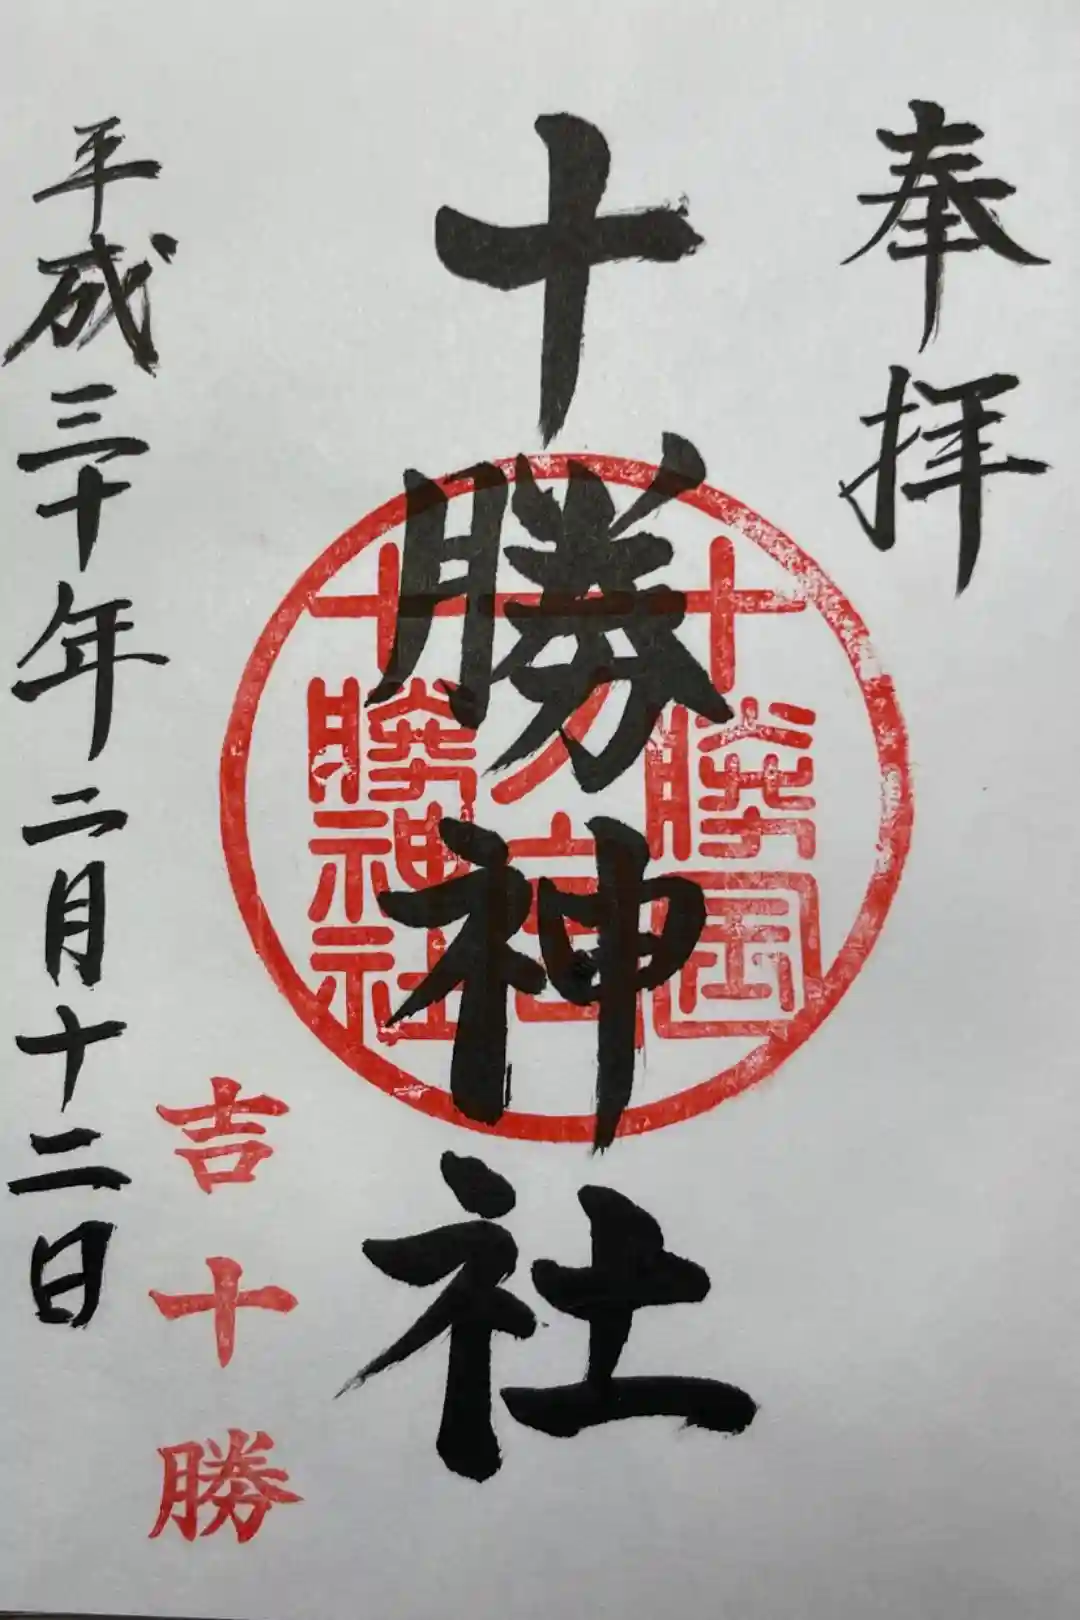 奉拝
十勝神社
十勝国
十勝神社
平成三十年二月十二日
吉十勝